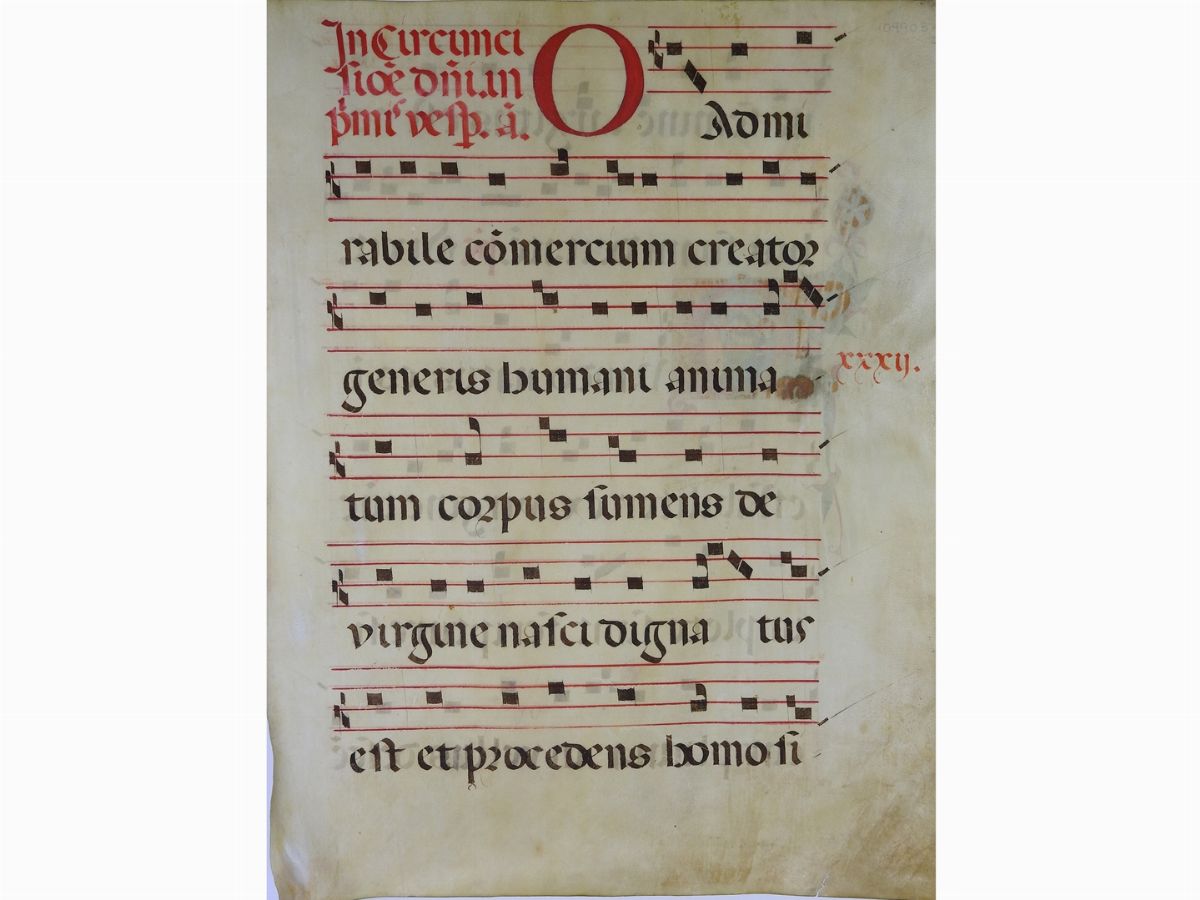 In Circunci
sioē dn̄i. in
p̄miˢ vesp̄. ā.
O
Admi
rabile cōmercium creator
generis humani anima
xxxij.
tum corpus sumens de
virgine nasci digna tus
est et procedens homo si